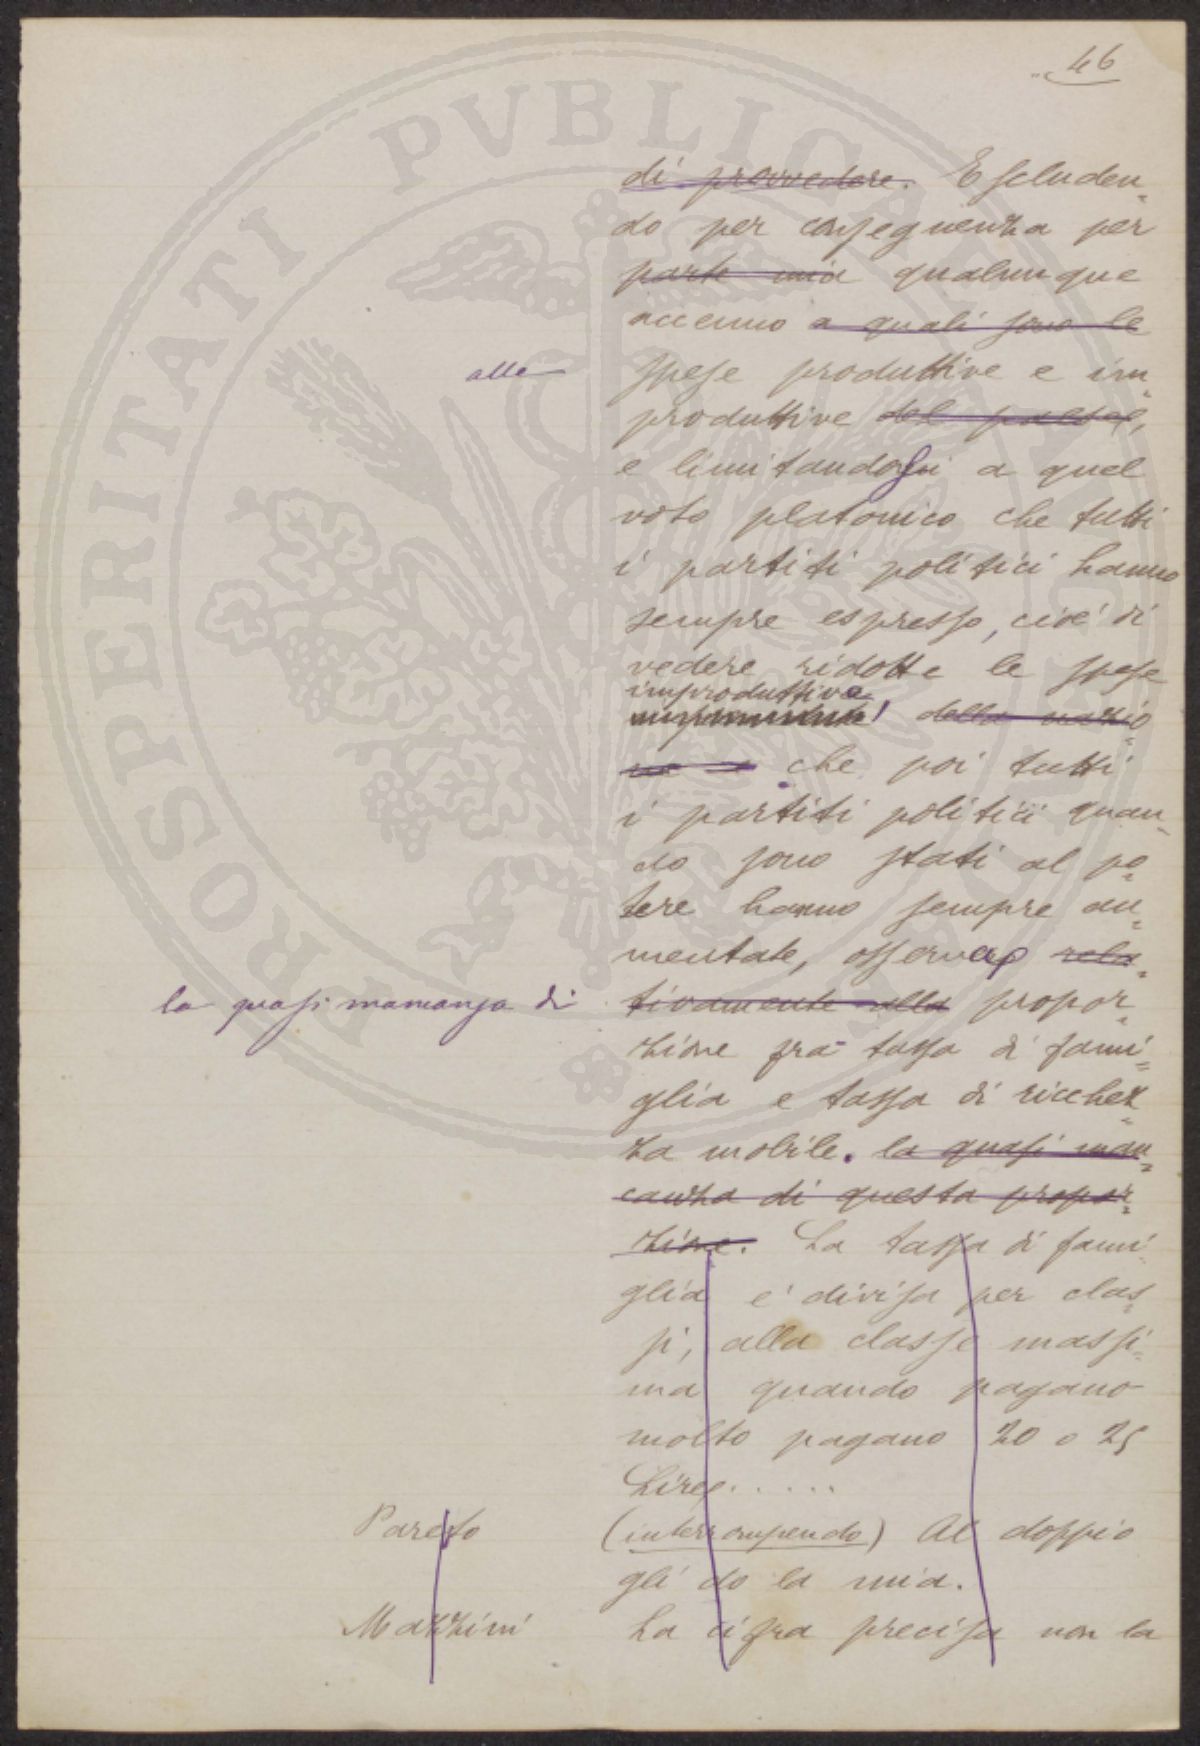 46
di provvedere. Escluden-
do per conseguenza per
parte mia qualunque
accenno a quali sono le
alle spese produttive e im-
produttive del paese,
e limitandosi a quel
voto platonico che tutti
i partiti politici hanno
sempre espresso, cioè di
vedere ridotte le spese
improduttive
della nazio-
ne e che poi tutti
i partiti politici quan-
do sono stati al po-
tere hanno sempre au-
mentate, osserva rela-
la quasi mancanza di tivamente alla propor-
zione fra tassa di fami-
glia e tassa di ricchez-
za mobile. la quasi man-
canza di questa propor-
zione. La tassa di fami-
glia e' divisa per clas-
si, alla classe massi-
ma quando pagano
molto pagano 20 o 25
Lire.....
Pareto (interrompendo) Al doppio
gli do la mia.
Mazzini La cifra precisa non la
PROSPERITATI PVBLICAE AVGENDAE